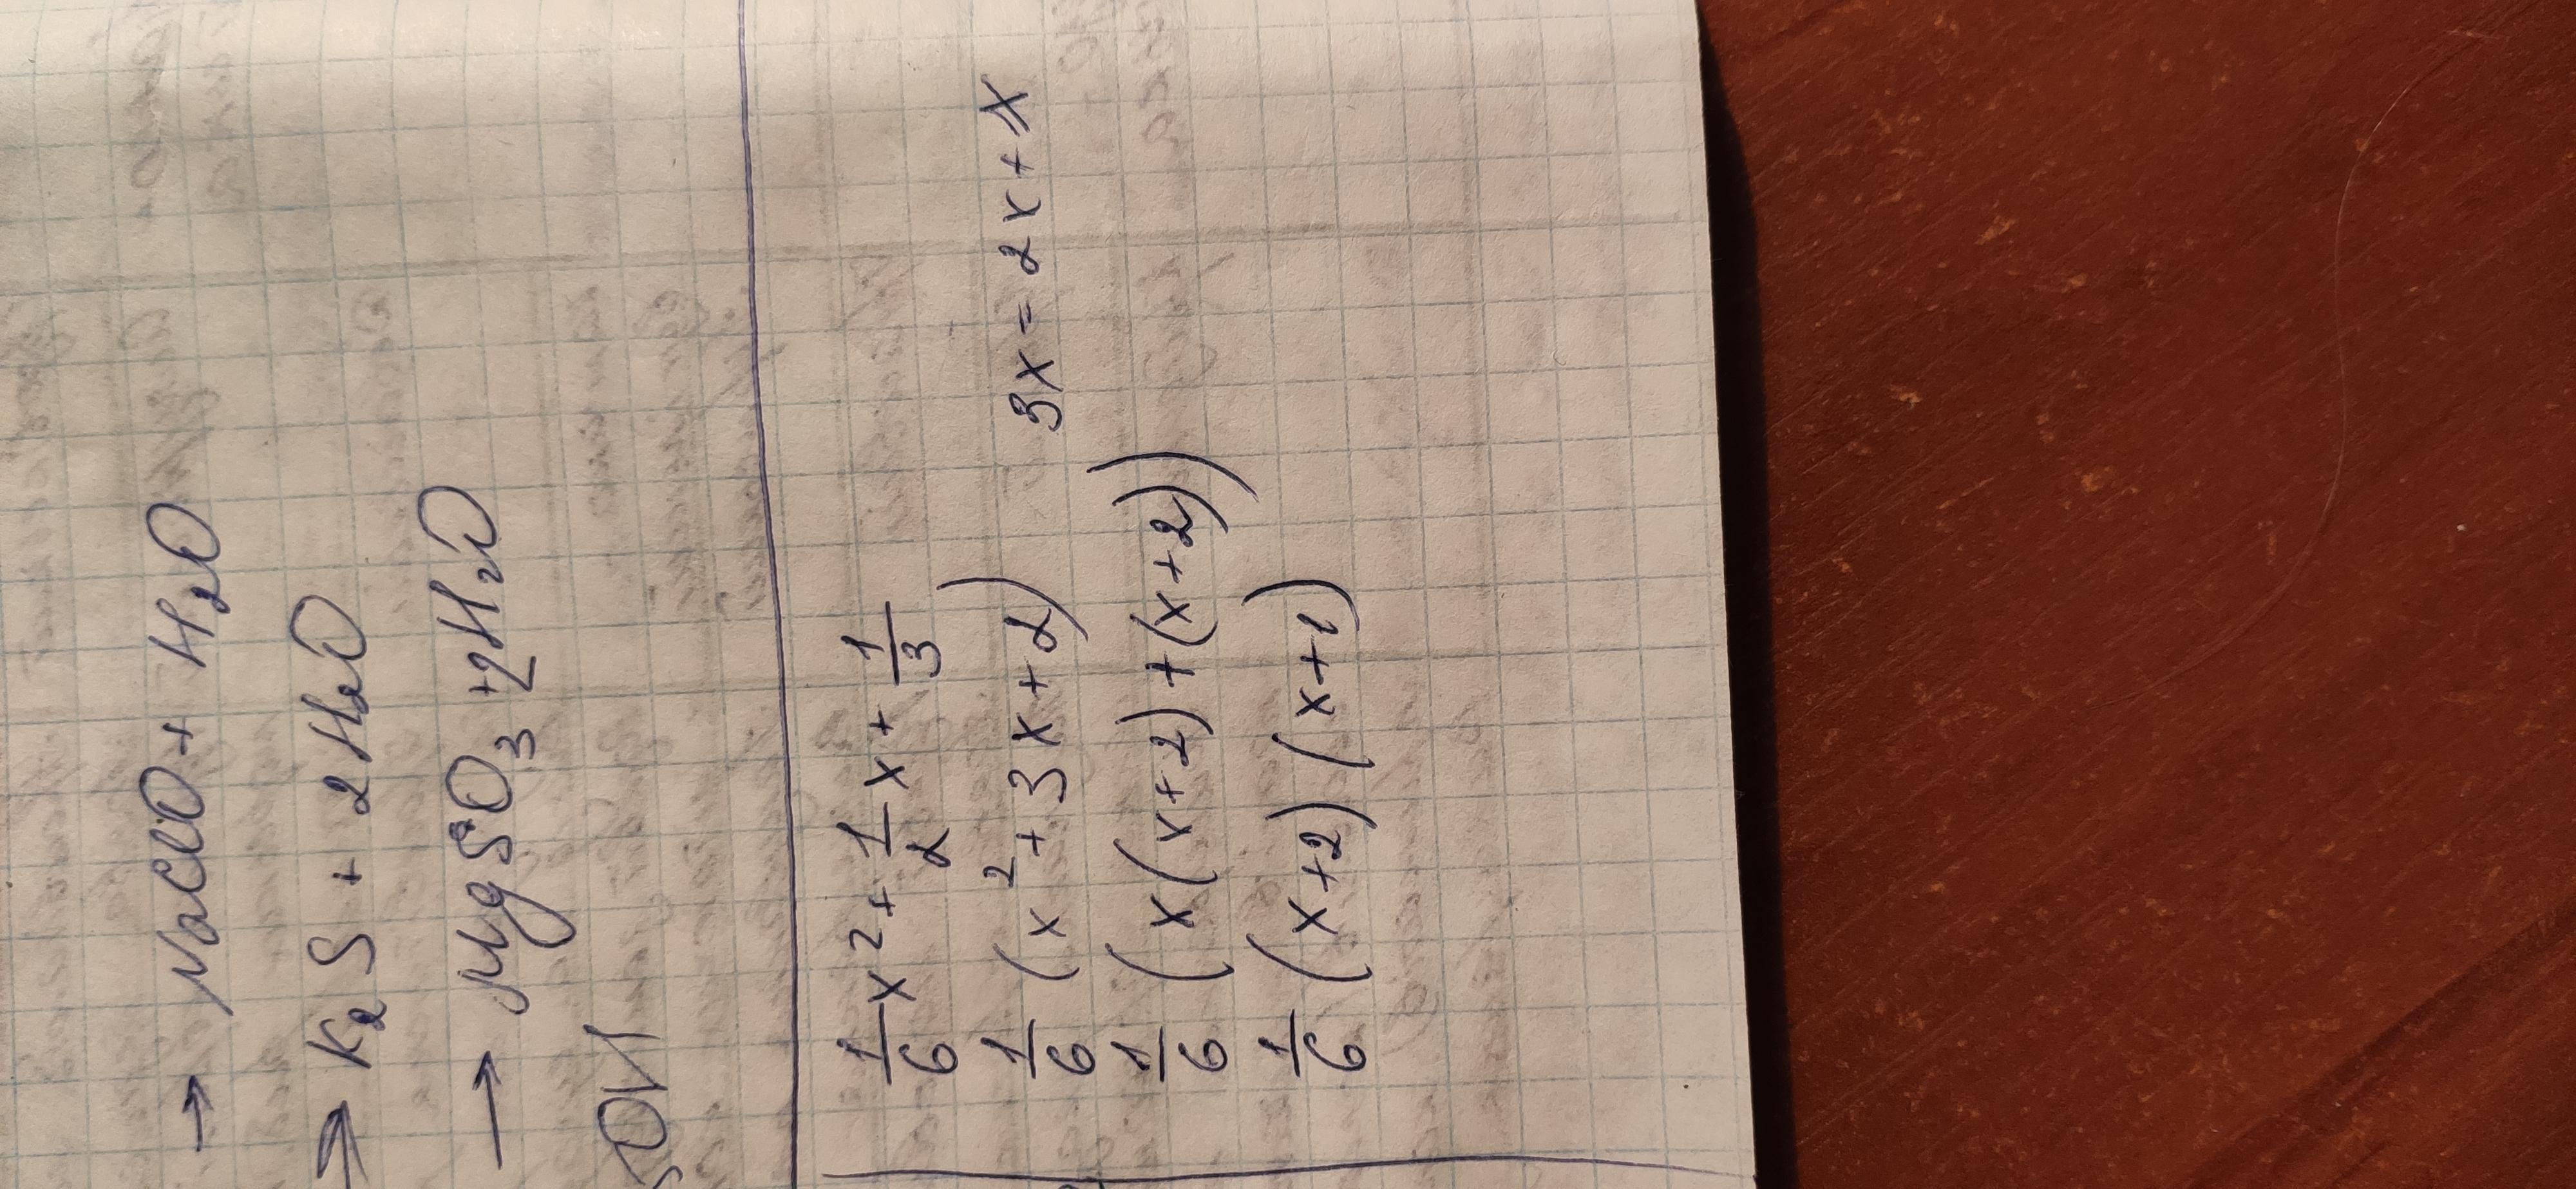 → NaClO + H₂O
→ K₂S + 2H₂O
→ MgSO₃ + 2H₂O
SOVI
1/6 x² + 1/2 x + 1/3
1/6 (x² + 3x + 2) 3x = 2x + x
1/6 (x(x+2) + (x+2))
1/6 (x+2)(x+1)